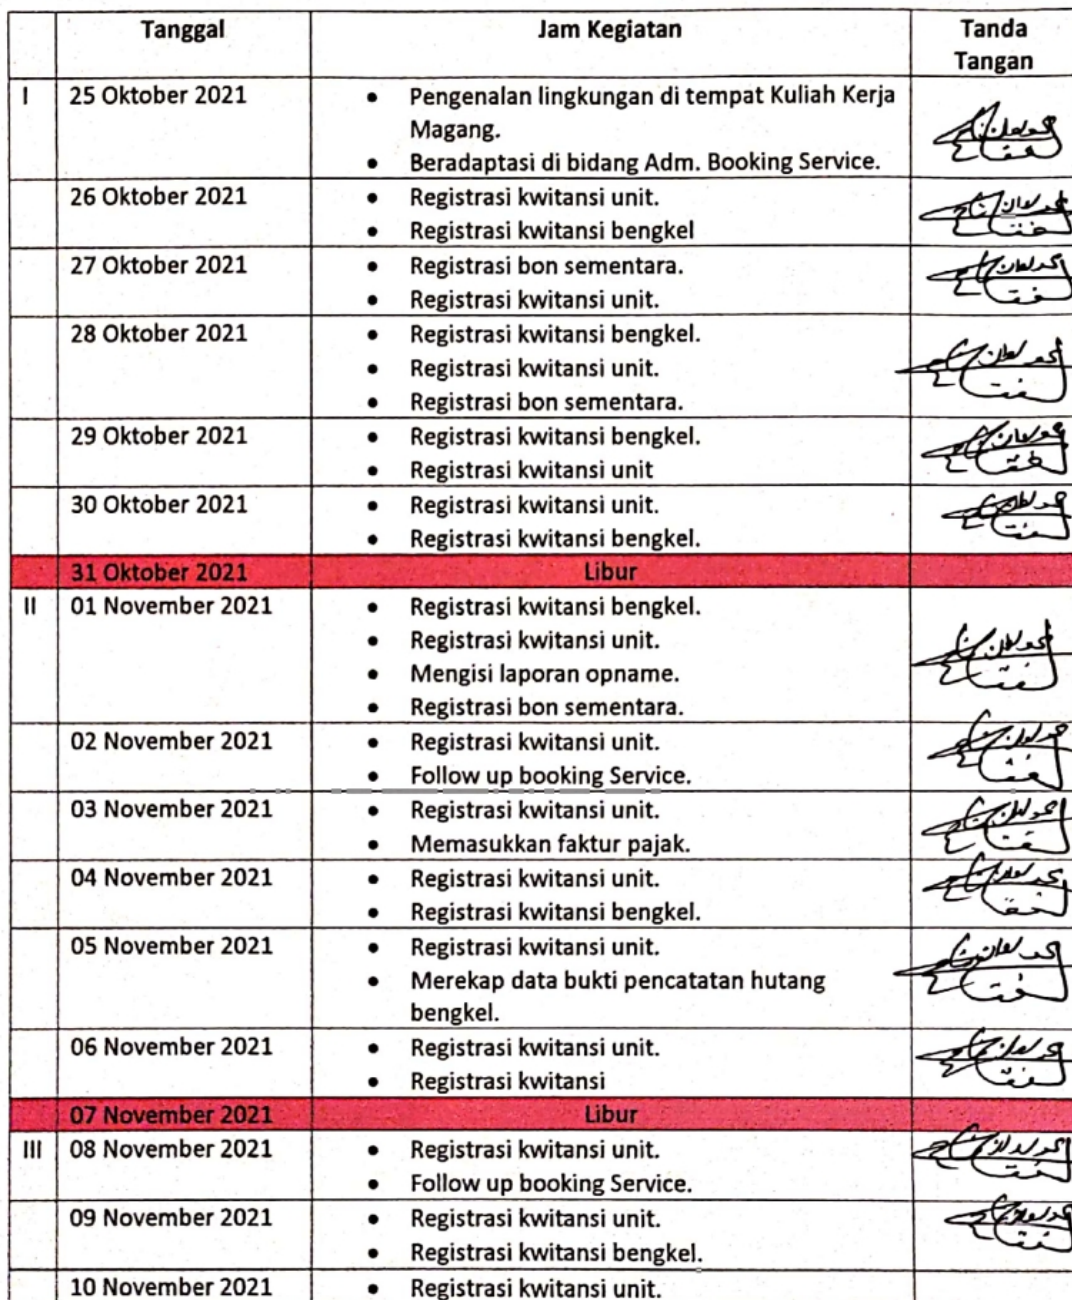 Tanggal Jam Kegiatan Tanda
Tangan
I 25 Oktober 2021 • Pengenalan lingkungan di tempat Kuliah Kerja
Magang.
• Beradaptasi di bidang Adm. Booking Service.
26 Oktober 2021 • Registrasi kwitansi unit.
• Registrasi kwitansi bengkel
27 Oktober 2021 • Registrasi bon sementara.
• Registrasi kwitansi unit.
28 Oktober 2021 • Registrasi kwitansi bengkel.
• Registrasi kwitansi unit.
• Registrasi bon sementara.
29 Oktober 2021 • Registrasi kwitansi bengkel.
• Registrasi kwitansi unit
30 Oktober 2021 • Registrasi kwitansi unit.
• Registrasi kwitansi bengkel.
31 Oktober 2021 Libur
II 01 November 2021 • Registrasi kwitansi bengkel.
• Registrasi kwitansi unit.
• Mengisi laporan opname.
• Registrasi bon sementara.
02 November 2021 • Registrasi kwitansi unit.
• Follow up booking Service.
03 November 2021 • Registrasi kwitansi unit.
• Memasukkan faktur pajak.
04 November 2021 • Registrasi kwitansi unit.
• Registrasi kwitansi bengkel.
05 November 2021 • Registrasi kwitansi unit.
• Merekap data bukti pencatatan hutang
bengkel.
06 November 2021 • Registrasi kwitansi unit.
• Registrasi kwitansi
07 November 2021 Libur
III 08 November 2021 • Registrasi kwitansi unit.
• Follow up booking Service.
09 November 2021 • Registrasi kwitansi unit.
• Registrasi kwitansi bengkel.
10 November 2021 • Registrasi kwitansi unit.